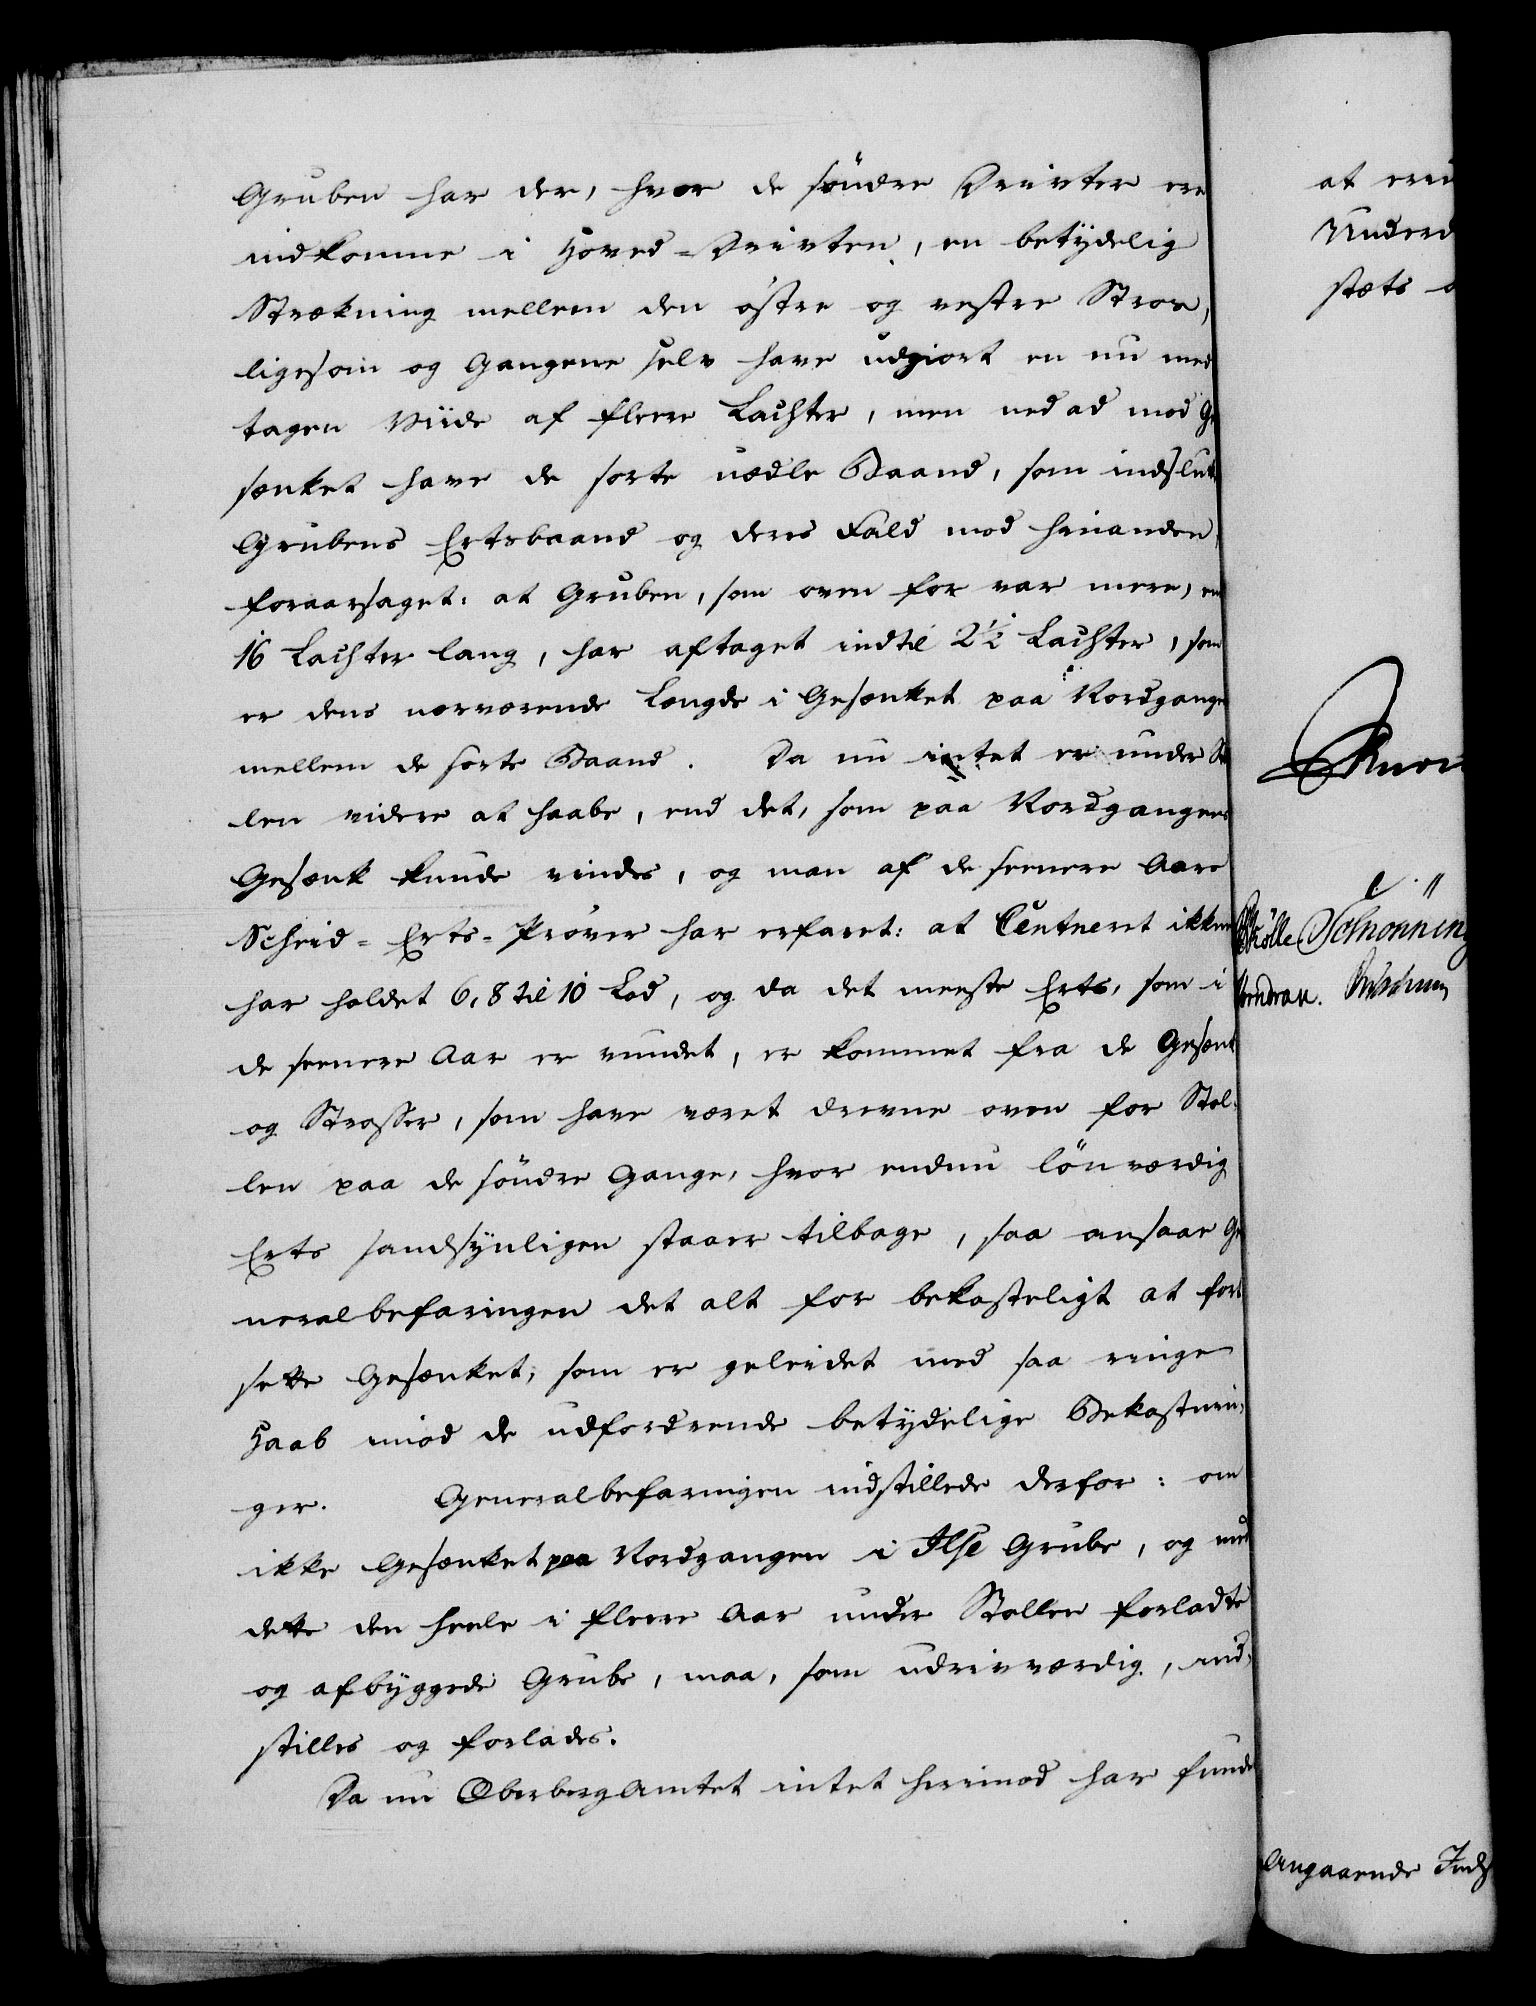 Gruben har der, hvor de søndre Drivter ere
indkomne i Hoved-Drivten, en betydelig
Strækning mellem den østre og vestre Stros,
ligesom og Gangene selv have udgiort en nu med
tagen Viide af fleere Lachter, men ned ad mod Ge
sænket have de sorte uædle Baand, som indslut
Grubens Ertsbaand og deres Fald mod hinanden,
foraarsaget: at Gruben, som oven for var mere, en
16 Lachter lang, har aftaget indtil 2½ Lachter, som
er dens nærværende Længde i Gesænket paa Nordgange
mellem de sorte Baand. Da nu intet er under Stol
len videre at haabe, end det, som paa Nordgangens
Gesænk kunde vindes, og man af de seenere Aars
Scheid-Erts-Prøver har erfaret: at Centneret ikkun
har holdet 6, 8 til 10 Lod, og da det meeste Erts, som i
de seenere Aar er vundet, er kommet fra de Gesænk
og Strosser, som have været drevne oven for Stol-
len paa de søndre Gange, hvor endnu lönværdig
Erts sandsynligen staaer tilbage, saa ansaae Ge
neralbefaringen det alt for bekosteligt at fort
sætte Gesænket, som er geleidet med saa ringe
Haab imod de udfordrende betydelige Bekostnin-
ger. Generalbefaringen indstillede derfor: om
ikke Gesænket paa Nordgangen i Ilse Grube, og med
dette den heele i fleere Aar under Stollen forladte
og afbyggede Grube, maa, som udrivværdig, ind-
stilles og forlades.
Da nu Oberbergamtet intet herimod har funde
at erin
Underd
stæts
Knor
Schønning
Angaaende Inds